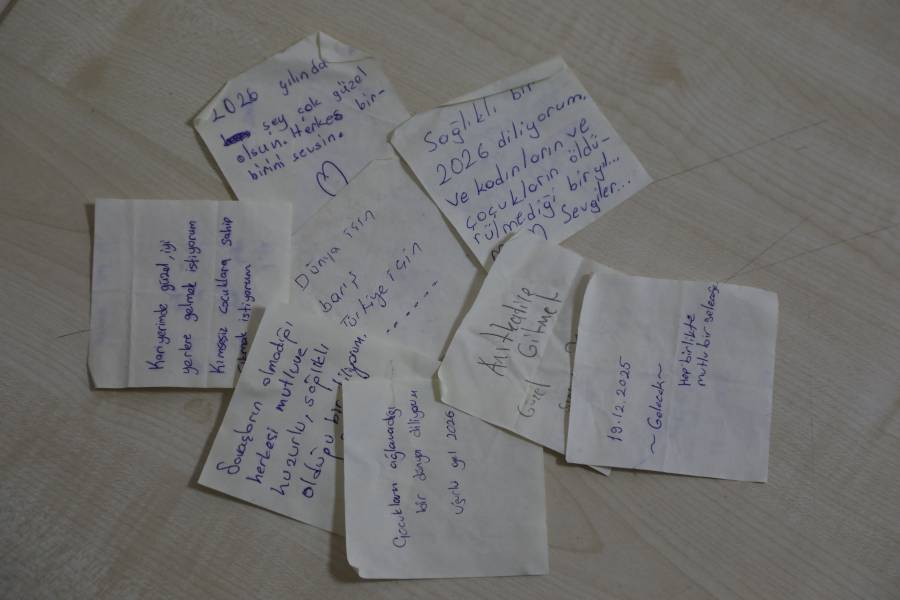 2026 yılında
şey çok güzel
olsun. Herkes bir-
birini sevsin.
Sağlıklı bir
2026 diliyorum,
ve kadınların ve
çocukların öldü-
rülmediği bir yıl...
Sevgiler...
Kariyerimde güzel, iyi
yerlere gelmek istiyorum
Kimsesiz çocuklara sahip
istiyorum
Dünya için
barış
Türkiye için
......
Savaşların olmadığı
herkesi mutluve
huzurlu, sağlıklı
olduğu bir
Çocukların ağlamadığı
bir dünya diliyorum
uğurlu gel 2026
Anıtkabire
Gitmek
Güzel
19.12.2025
~Gelecek~
Hep birlikte
mutlu bir gelecek